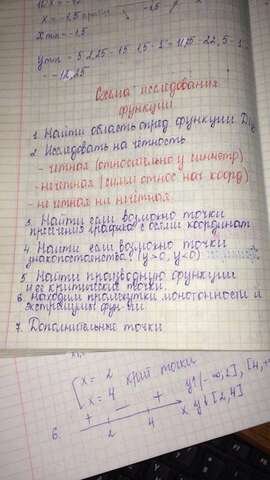 x = -1,5
xmin = -1,5
- 12,25
Схема исследования
функции
1. Найти область опред функции D(y)
2. Исследовать на четность
- четная (относительно y симметр)
- нечетная (симм относ нач коорд)
- не четная ни нечетная
3. Найти если возможно точки
пресечения графика с осями координат
4. Найти если возможно точки
знакопостоянства (y>0, y<0)
5. Найти производную функции
и её критические точки.
6. Находим промежутки монотонности и
экстремумы фун-ции
7. Дополнительные точки
x = 2 крит точки
x = 4
6. + - +
2 4 x
y↑(-∞,2], [4,+
y↓[2,4]